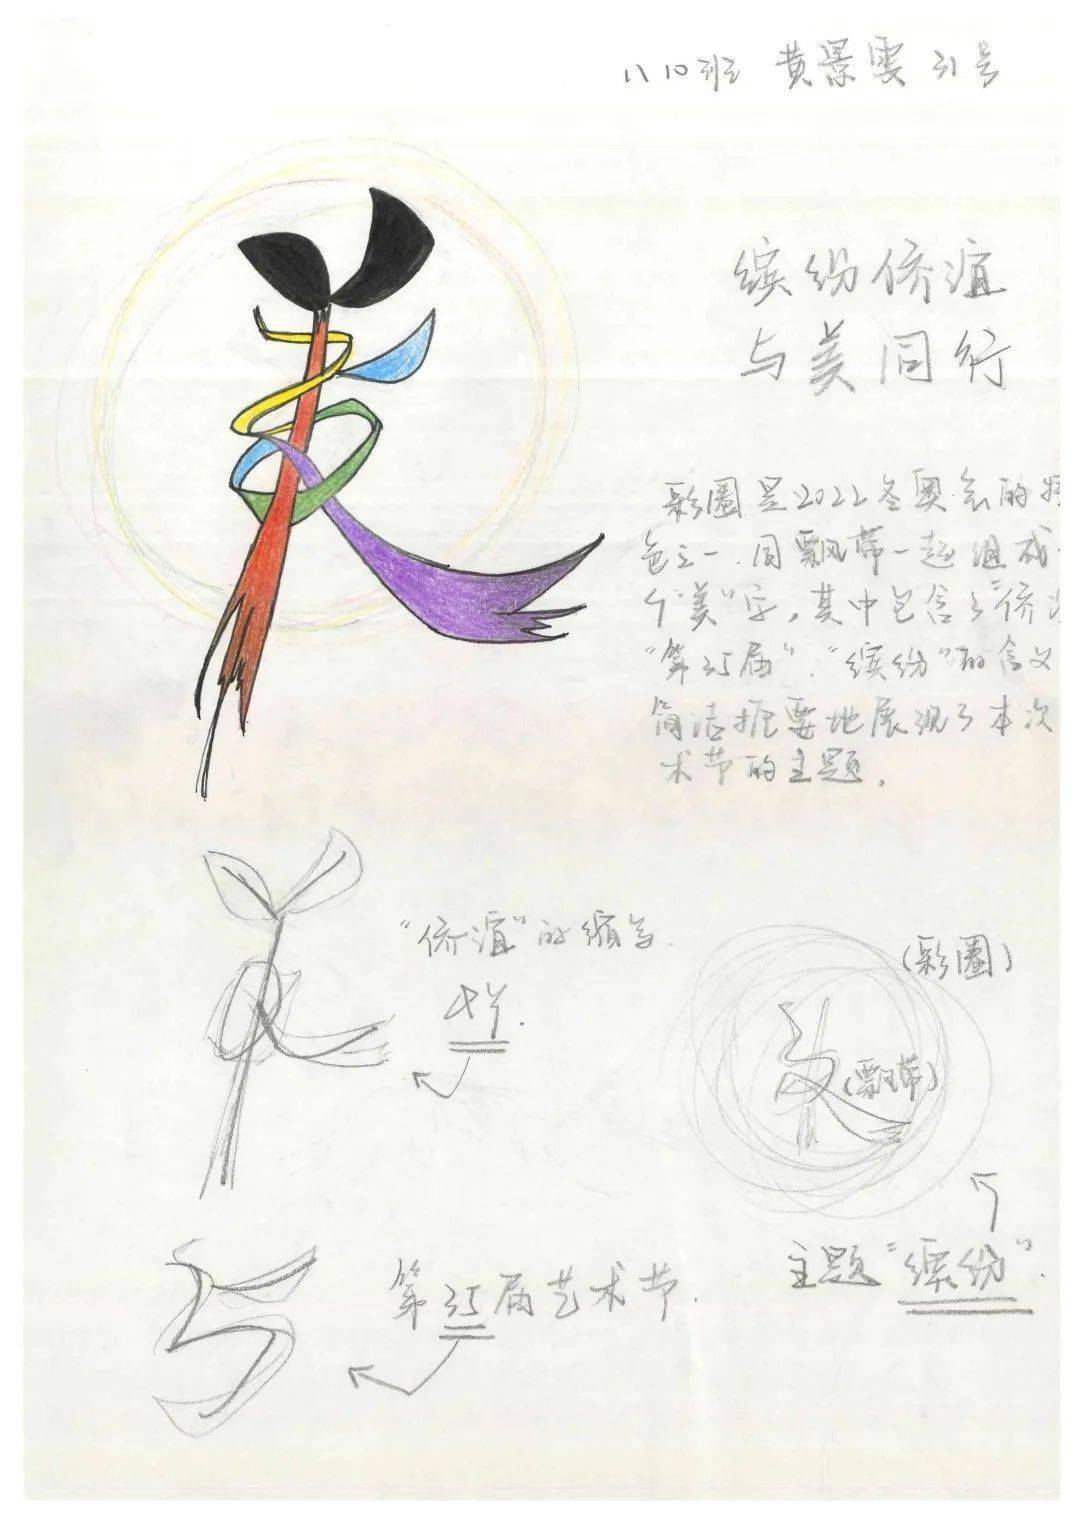 10班 黄景雯 31号
缤纷侨谊
与美同行
彩圈是2022冬奥会的特
色之一.同飘带一起组成一
个“美”字,其中包含了“侨
“第35届”.“缤纷”的含义
简洁扼要地展现了本次
术节的主题.
“侨谊”的缩写.
(彩圈)
(飘带)
主题“缤纷”.
第35届艺术节.